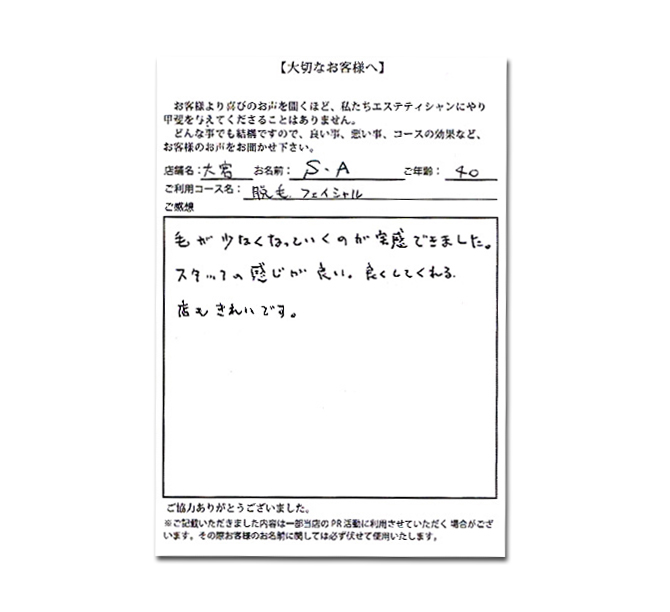 【大切なお客様へ】
お客様より喜びのお声を聞くほど、私たちエステティシャンにやり
甲斐を与えてくださることはありません。
どんな事でも結構ですので、良い事、悪い事、コースの効果など、
お客様のお声をお聞かせ下さい。
店舗名：大宮 お名前： S.A ご年齢： 40
ご利用コース名： 脱毛、フェイシャル
ご感想
毛が少なくなっていくのが実感できました。
スタッフの感じが良い。良くしてくれる
店もきれいです。
ご協力ありがとうございました。
※ご記載いただきました内容は一部当店のPR活動に利用させていただく場合がござ
います。その際お客様のお名前に関しては必ず伏せて使用いたします。